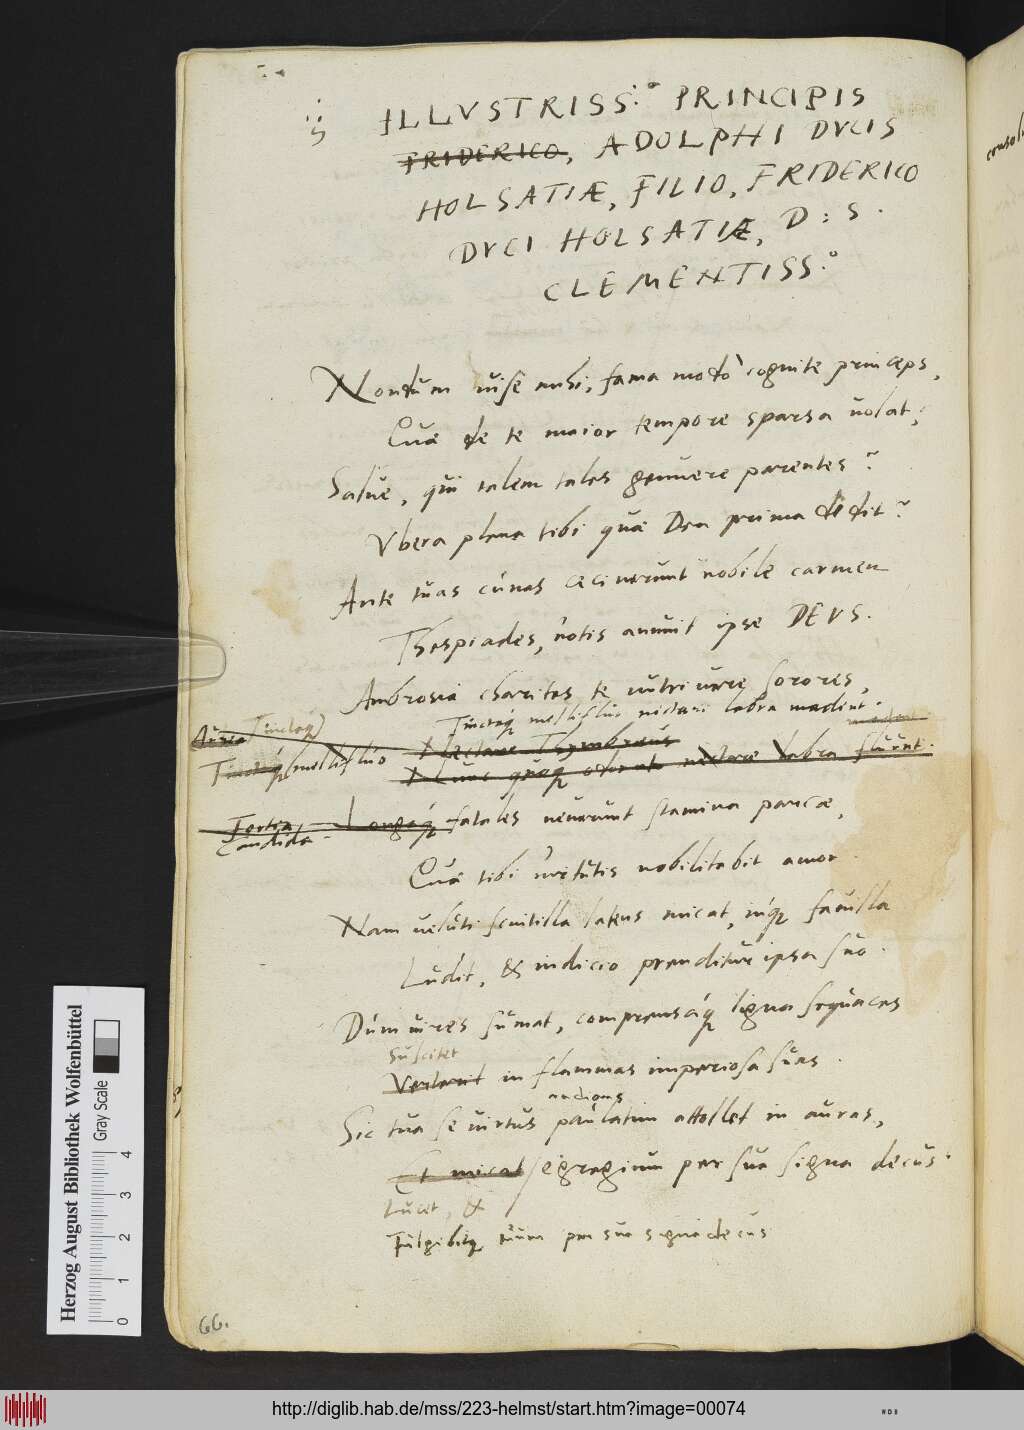 ILLVSTRISS:º PRINCIPIS
FRIDERICO, ADOLPHI DVCIS
HOLSATIÆ, FILIO, FRIDERICO
DVCI HOLSATIÆ, D: S.
CLEMENTISS:º
Nondum uise mihi, fama modò cognite princeps,
Quæ de te maior tempore sparsa uolat;
Salue, qui talem tales genuere parentes?
Vbera plena tibi quæ Dea prima dedit?
Ante tuas cunas cecinerunt nobile carmen
Thespiades, uotis annuit ipse DEVS.
Ambrosia charites te nutriuere sorores,
Tinctaq́ mellifluo nectare labra madent.
Aurea Tinctaq́
Nectare Thymbræus
mellifluo
nectare labra fluunt.
Fortia Longaq́ fatales neuerunt stamina parcæ,
Candida
Quæ tibi uirtutis nobilitabit amor
Nam ueluti scintilla latens micat, inq́ fauilla
Ludit, & indicio prenditur ipsa suo.
Dum uires sumat, comprensaq́ ligna sequaces
Suscitet
in flammas imperiosa suas.
Sic tua se uirtus paulatim attollet in auras,
Et micat egregium per sua signa decus.
Lucet, &
Fulgebitq́ tuum per sua signa decus
66.
Herzog August Bibliothek Wolfenbüttel
Gray Scale
0 1 2 3 4
http://diglib.hab.de/mss/223-helmst/start.htm?image=00074